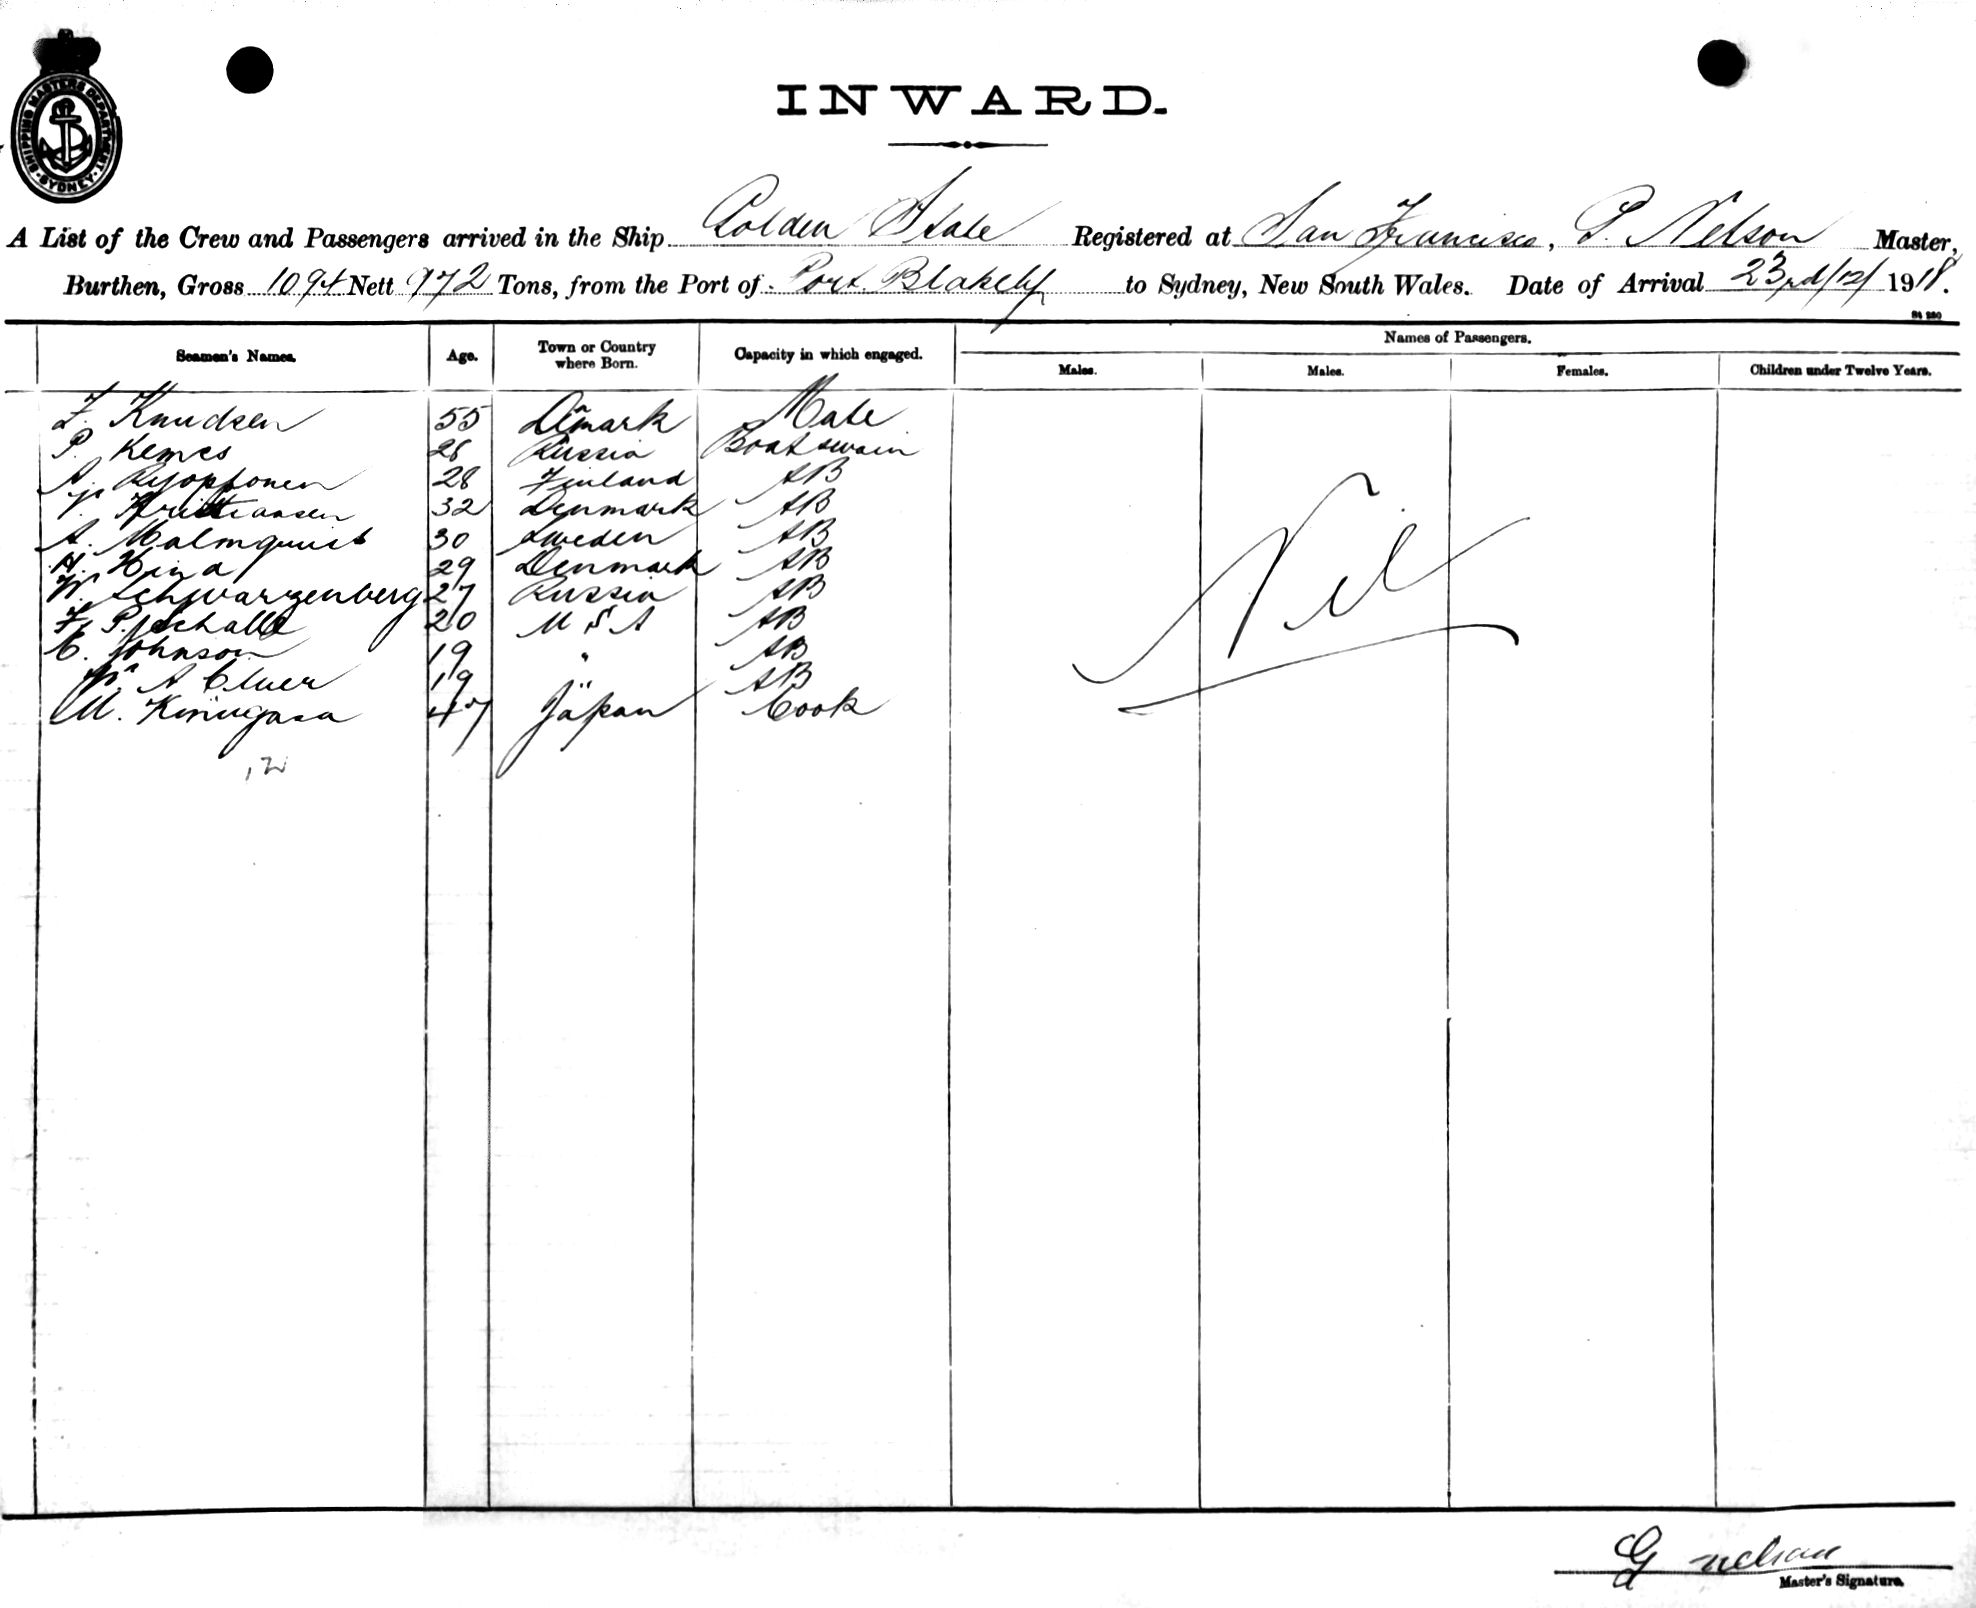 SHIPPING MASTERS DEPARTMENT. SYDNEY.
INWARD.
A List of the Crew and Passengers arrived in the Ship Golden State Registered at San Francisco, P. Nelson Master,
Burthen, Gross 1094 Nett 972 Tons, from the Port of Port Blakely to Sydney, New South Wales. Date of Arrival 23rd/12/1918.
Names of Passengers.
Seamen's Names. Age. Town or Country where Born. Capacity in which engaged. Males. Males. Females. Children under Twelve Years.
F. Knudsen 55 Denmark Mate
P. Kemes 26 Russia Boatswain
A. 28 Finland AB
Kristiansen 32 Denmark AB
A. Malmquist 30 Sweden AB
H. Hind 29 Denmark AB
W. Schwarzenberg 27 Russia AB
F. 20 U S A AB
C. Johnson 19 " AB
A Cluer 19 " AB
M. Kinugasa 47 Japan Cook
12
Nil
G Nelson
Master's Signature.